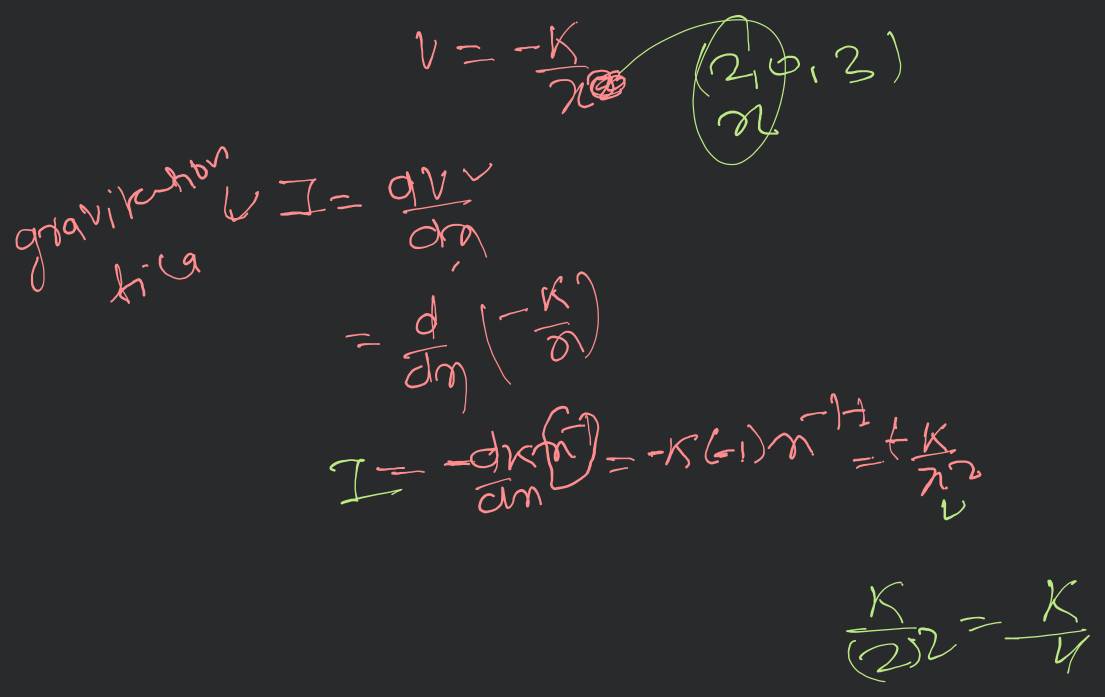 V = -K/x (2, 0, 3)
x
gravitation I = dV/dx
= d/dx (-K/x)
I = -dKx^-1/dx = -K(-1)x^-1-1 = +K/x^2
K/(2)2 = K/4